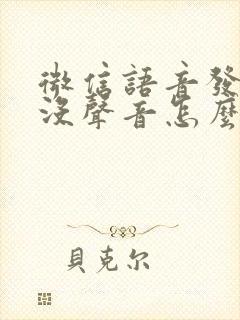 微信語音發
沒聲音怎麼
貝克尔